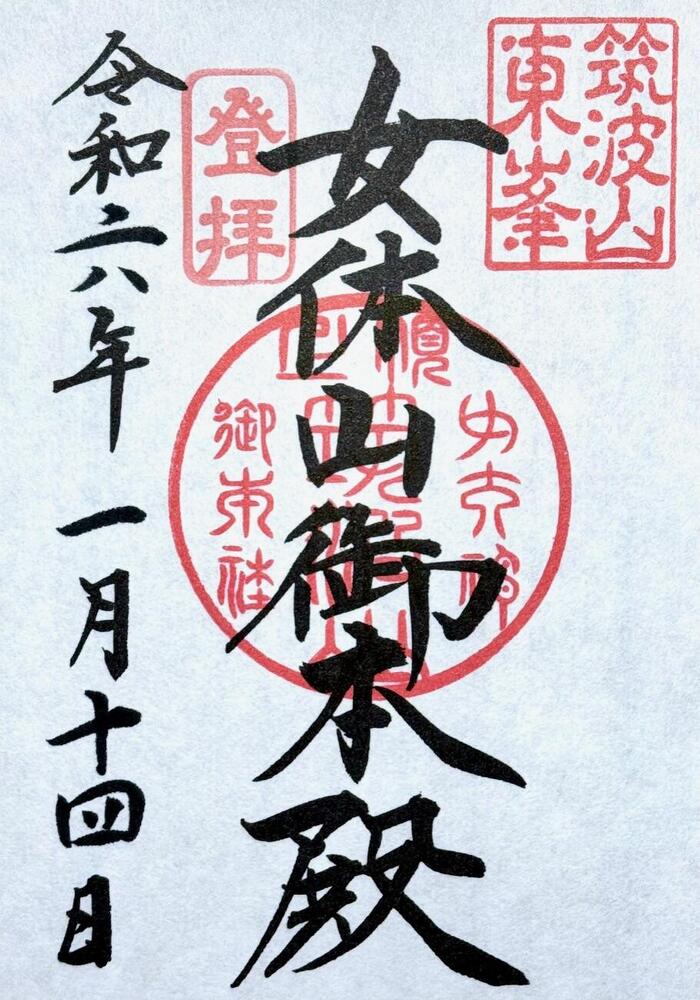 筑波山
東峯
女体山御本殿
登拝
御本社
令和六年 一月十四日